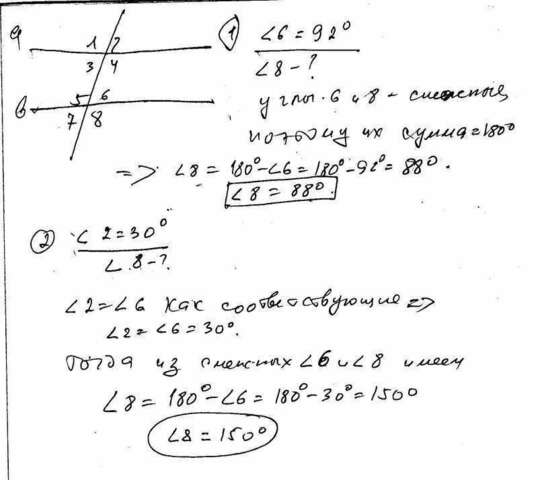 a
1 2
3 4
в
5 6
7 8
1 ∠6 = 92°
∠8 - ?
углы 6 и 8 - смежные,
поэтому их сумма = 180°
=> ∠8 = 180° - ∠6 = 180° - 92° = 88°.
∠8 = 88°.
2 ∠2 = 30°
∠8 - ?
∠2 = ∠6 как соответствующие =>
∠2 = ∠6 = 30°.
тогда из смежных ∠6 и ∠8 имеем
∠8 = 180° - ∠6 = 180° - 30° = 150°
∠8 = 150°